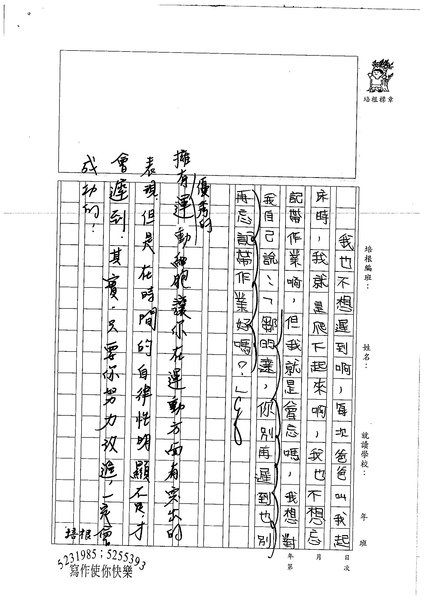 培根標章
培根編班：
姓名：
就讀學校：
年 班
我也不想遲到啊，每次爸爸叫我起
床時，我就是爬不起來啊，我也不想忘
記帶作業啊，但我就是會忘嗎，我想對
我自己說：「鄭的達，你別再遲到也別
再忘記帶作業好嗎？」
擁有運動細胞讓你在運動方面有突出的
優秀的
表現，但是在時間的自律性明顯不足，才
會遲到，其實，只要你努力改進，一定會
成功的！
年 月 日
第 次
培根
5231985；5255393
寫作使你快樂